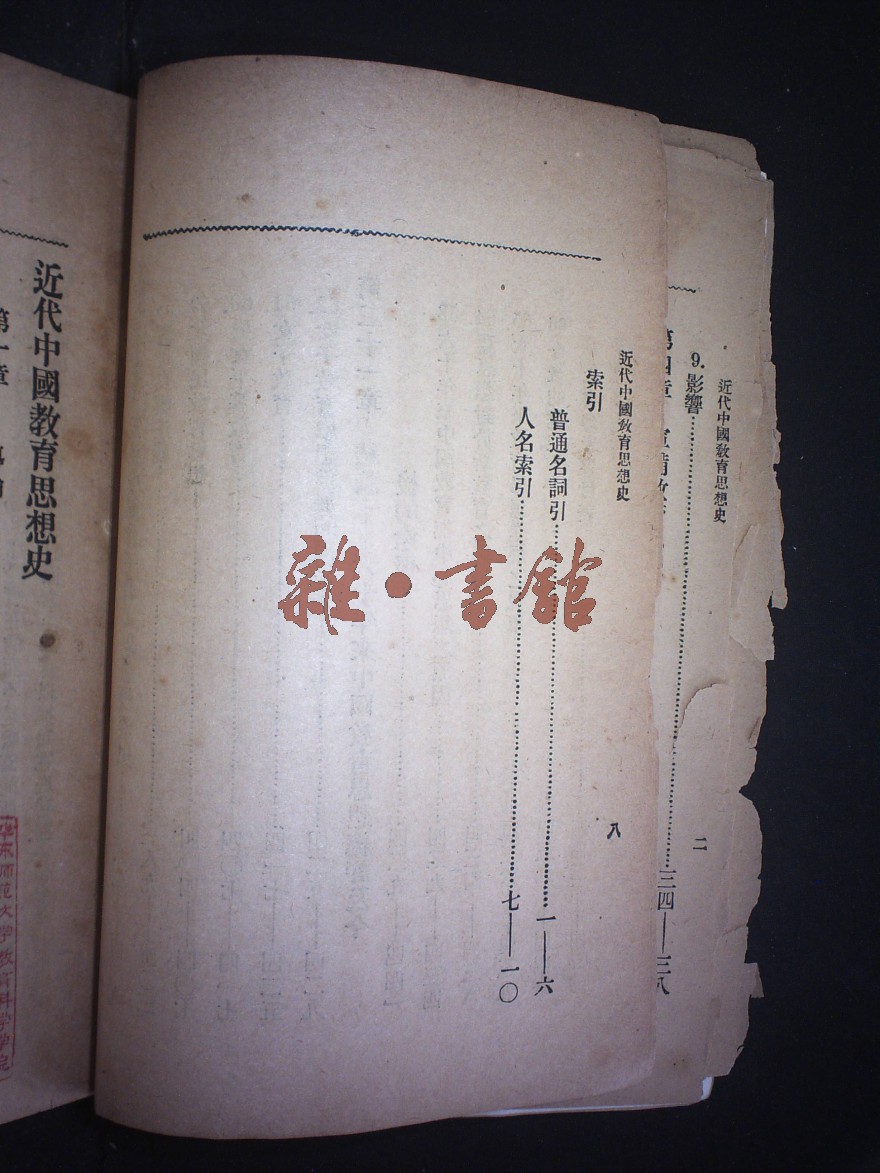 近代中國敎育思想史
二
9.影響……三四——三八
第四章
近代中國敎育思想史
八
索引
普通名詞引……一——六
人名索引……七——一〇
近代中國教育思想史
第一章
雜·書館
华东师范大学教育科学学院